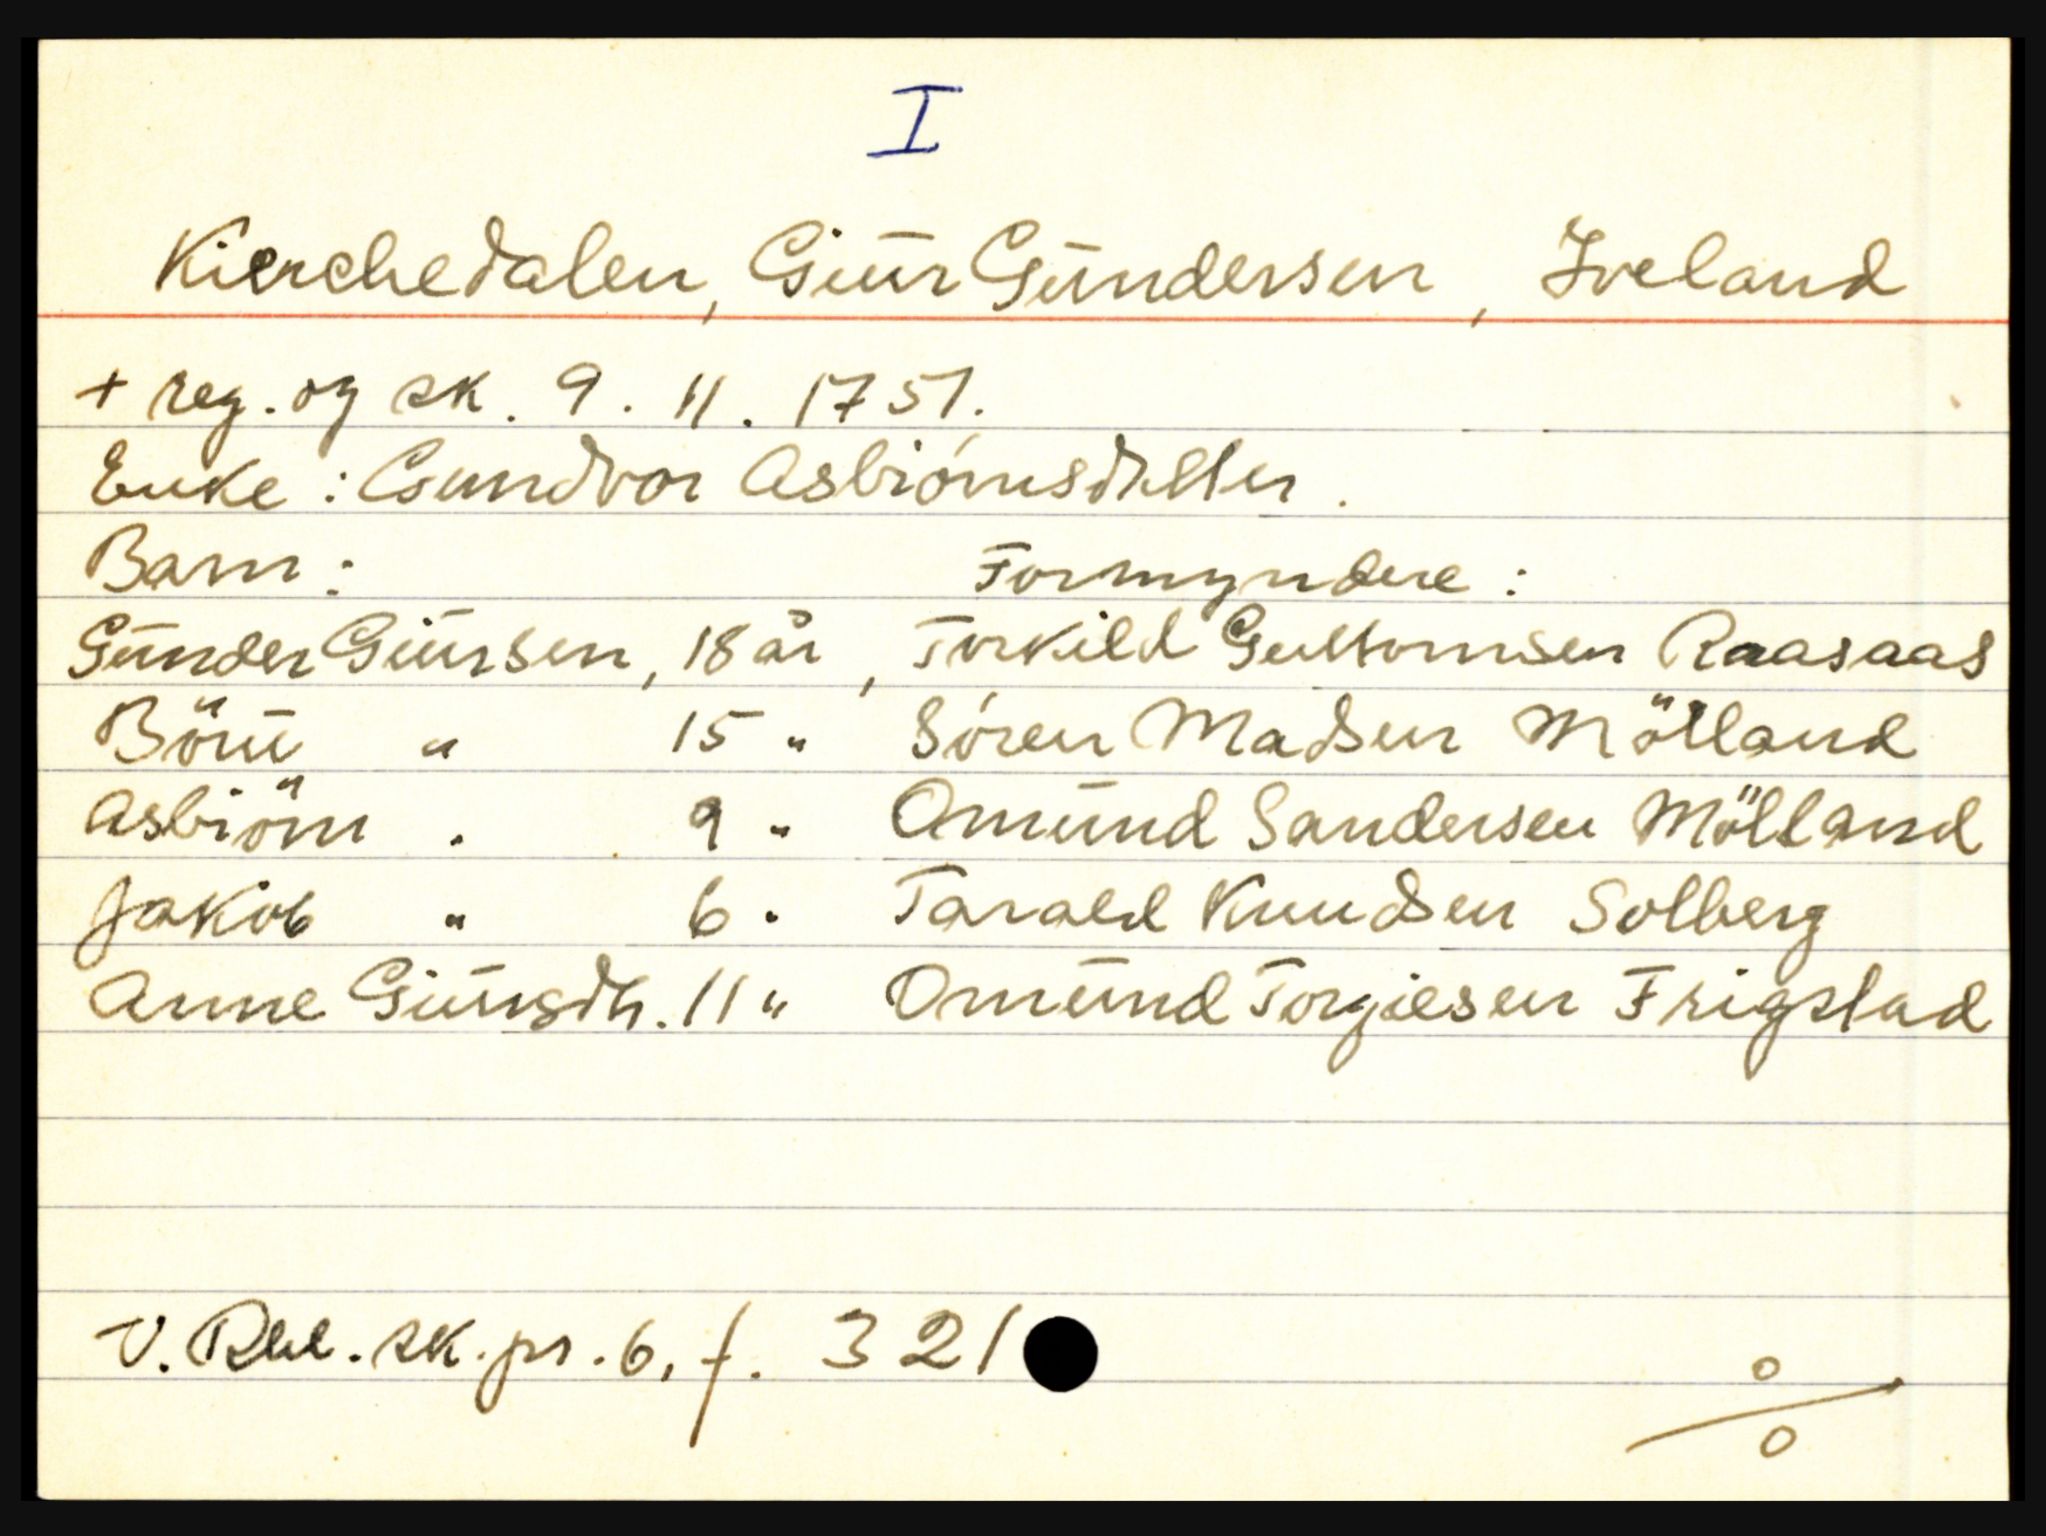 I
Kierchedalen, Giūr Gūndersen, Iveland
+ reg. og sk. 9. 11. 1751.
Enke: Gundvor Asbiórnsdatter.
Barn: Formyndere:
Gūnder Giūrsen, 18 år, Torkild Guttormsen Raasaas
" 15 " Sóren Madsen Mölland
Asbiörn . 9 " Omūnd Sandersen Mölland
Jakob " 6 . Tarald Knudsen Solberg
Anne Giūrsdtr. 11 " Omūnd Torgiesen Frigstad
V. Rbl. sk. pr. 6, f. 321
o/o